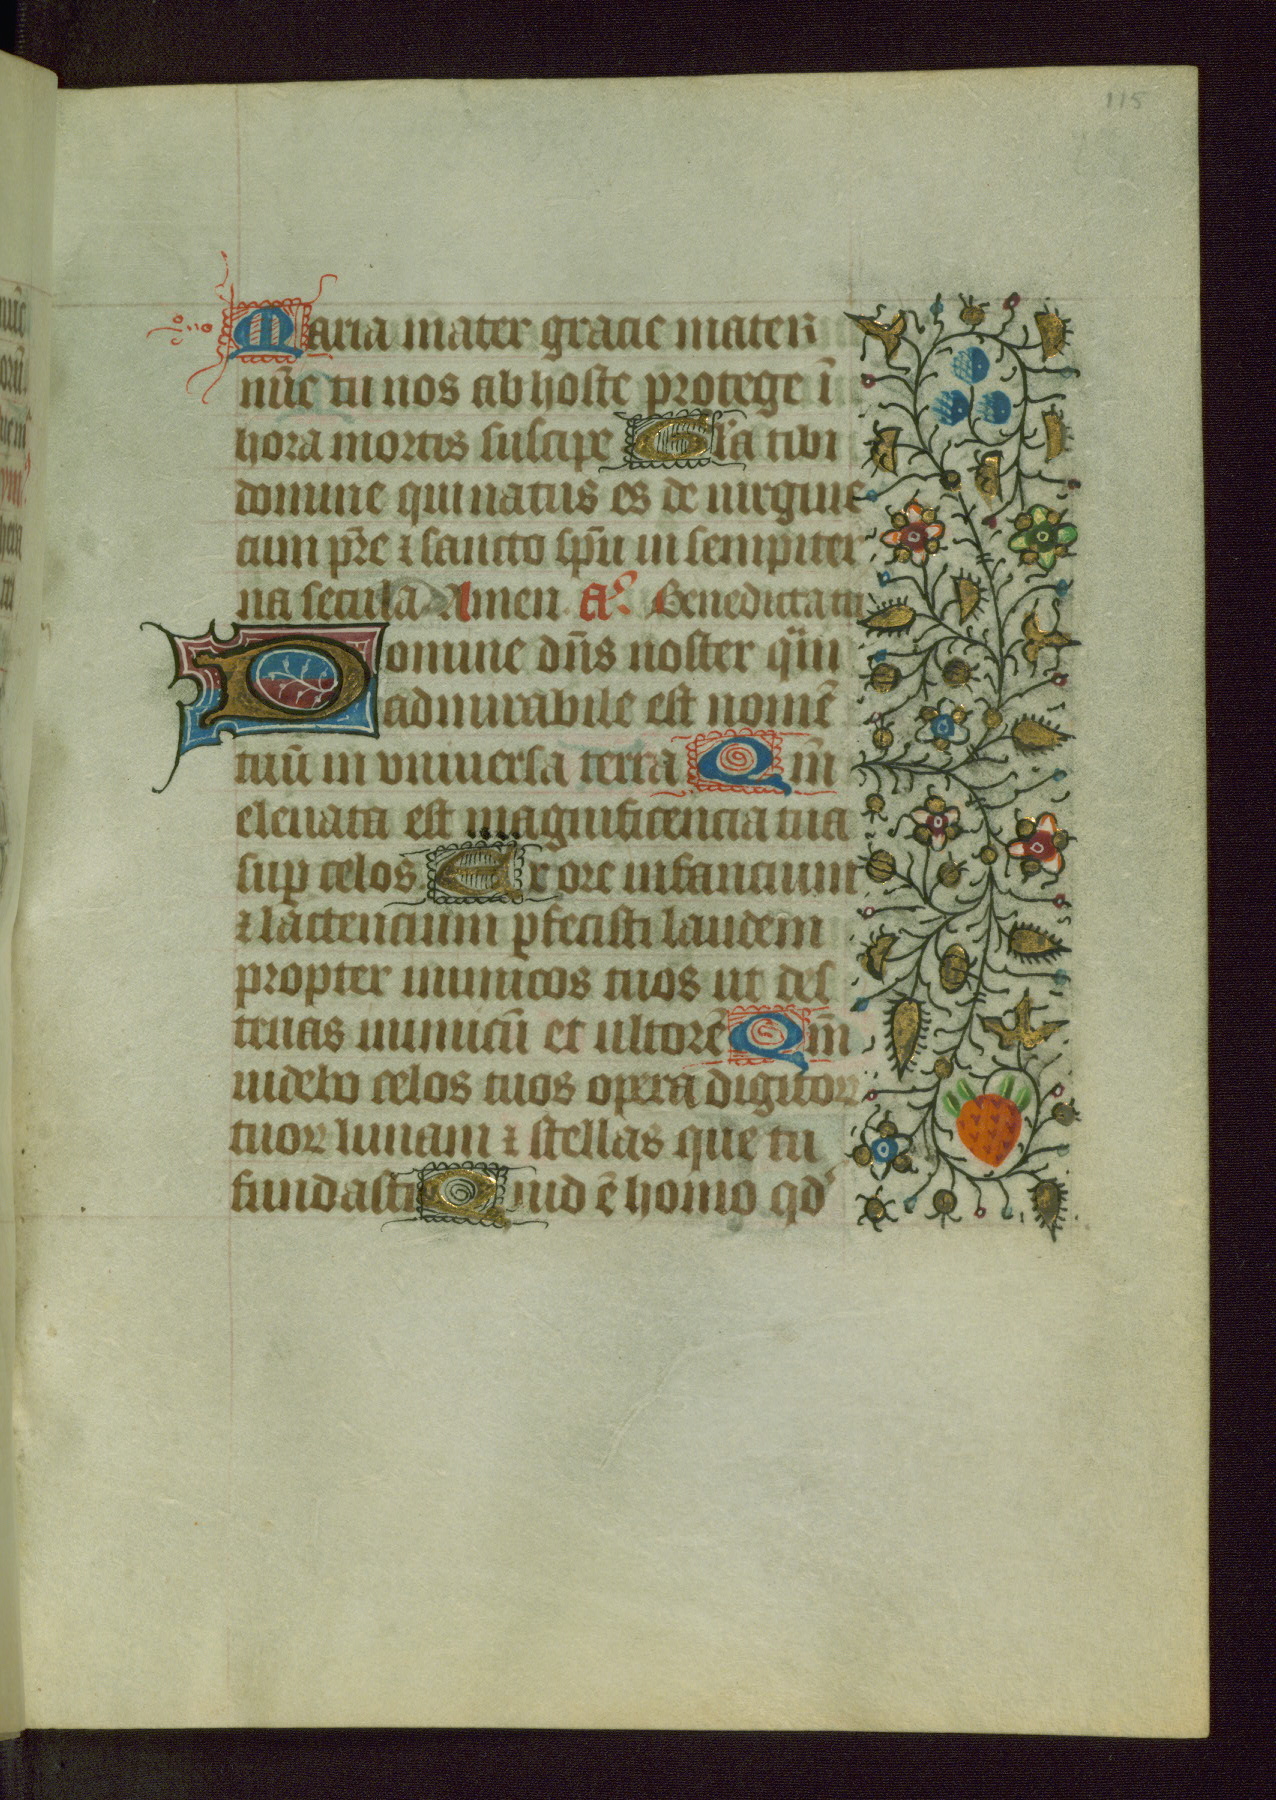 115
Maria mater gracie mater mi
nūc tu nos ab hoste protege ī
hora mortis suscipe Gla tibi
domine qui natus es de uirgine
cum pr̄e ⁊ sancto sp̄u in sempiter
na secula Amen a° Benedicta tu
Domine dn̄s noster q̄m
admirabile est nomē
tuū in vniuersa terra Qm̄
eleuata est magnificencia tua
sup celos Ex ore infancium
⁊ lactencium ꝑfecisti laudem
propter inimicos tuos ut des
truas inimicū et ultorē Qm̄
uidebo celos tuos opera digitoꝝ
tuoꝝ lunam ⁊ stellas que tu
fundasti Quid ē homo qd